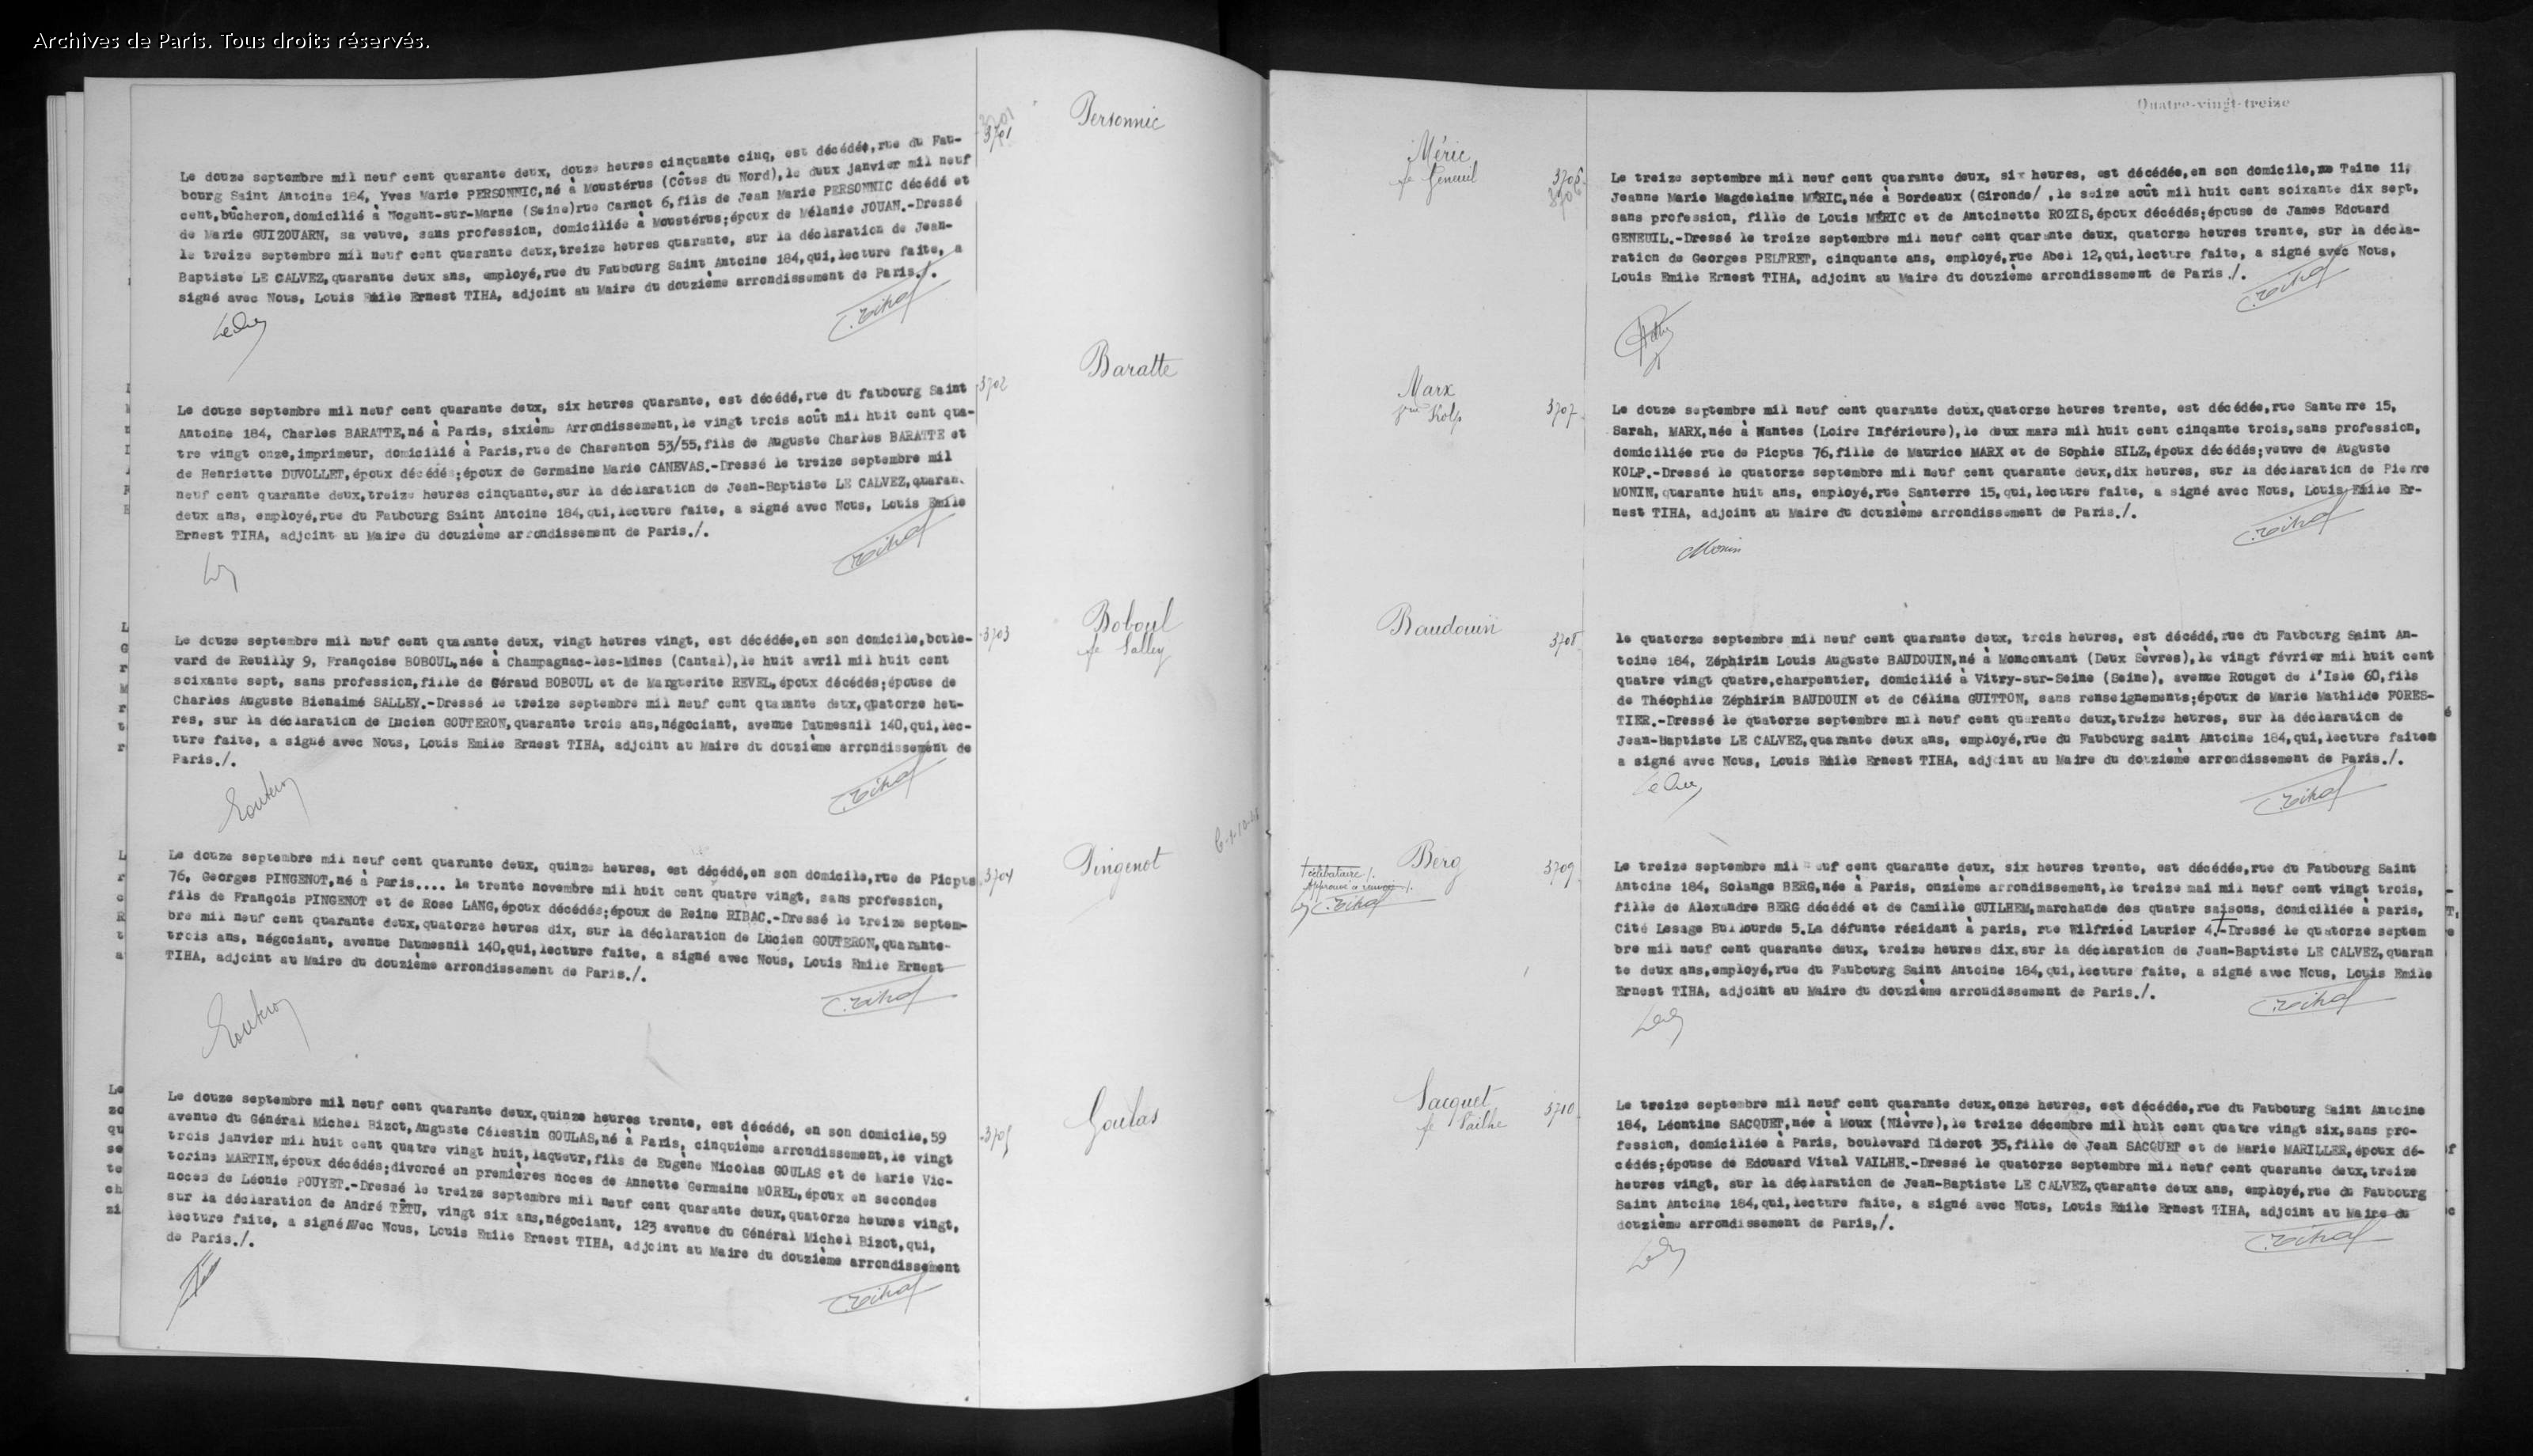 Archives de Paris. Tous droits réservés.
3701
3701
Personnic
Le douze septembre mil neuf cent quarante deux, douze heures cinquante cinq, est décédée, rue du Fau-
bourg Saint Antoine 184, Yves Marie PERSONNIC, né à Moustérus (Côtes du Nord), le deux janvier mil neuf
cent, bûcheron, domicilié à Nogent-sur-Marne (Seine) rue Carnot 6, fils de Jean Marie PERSONNIC décédé et
de Marie GUIZOUARN, sa veuve, sans profession, domiciliée à Moustérus; époux de Mélanie JOUAN.-Dressé
le treize septembre mil neuf cent quarante deux, treize heures quarante, sur la déclaration de Jean-
Baptiste LE CALVEZ, quarante deux ans, employé, rue du Faubourg Saint Antoine 184, qui, lecture faite, a
signé avec Nous, Louis Emile Ernest TIHA, adjoint au Maire du douzième arrondissement de Paris./.
3702
Baratte
Le douze septembre mil neuf cent quarante deux, six heures quarante, est décédé, rue du faubourg Saint
Antoine 184, Charles BARATTE, né à Paris, sixième Arrondissement, le vingt trois août mil huit cent qua-
tre vingt onze, imprimeur, domicilié à Paris, rue de Charenton 53/55, fils de Auguste Charles BARATTE et
de Henriette DUVOLLET, époux décédés; époux de Germaine Marie CANEVAS.-Dressé le treize septembre mil
neuf cent quarante deux, treize heures cinquante, sur la déclaration de Jean-Baptiste LE CALVEZ, quaran.
deux ans, employé, rue du Faubourg Saint Antoine 184, qui, lecture faite, a signé avec Nous, Louis Emile
Ernest TIHA, adjoint au Maire du douzième arrondissement de Paris./.
3703
Boboul
fe Salley
Le douze septembre mil neuf cent quarante deux, vingt heures vingt, est décédée, en son domicile, boule-
vard de Reuilly 9, Françoise BOBOUL, née à Champagnac-les-Mines (Cantal), le huit avril mil huit cent
soixante sept, sans profession, fille de Géraud BOBOUL et de Marguerite REVEL, époux décédés; épouse de
Charles Auguste Bienaimé SALLEY.-Dressé le treize septembre mil neuf cent quarante deux, quatorze heu-
res, sur la déclaration de Lucien GOUTERON, quarante trois ans, négociant, avenue Daumesnil 140, qui, lec-
ture faite, a signé avec Nous, Louis Emile Ernest TIHA, adjoint au Maire du douzième arrondissement de
Paris./.
3704
Pingenot
Le douze septembre mil neuf cent quarante deux, quinze heures, est décédé, en son domicile, rue de Picpus
76, Georges PINGENOT, né à Paris.... le trente novembre mil huit cent quatre vingt, sans profession,
fils de François PINGENOT et de Rose LANG, époux décédés; époux de Reine RIBAC.-Dressé le treize septem-
bre mil neuf cent quarante deux, quatorze heures dix, sur la déclaration de Lucien GOUTERON, quarante-
trois ans, négociant, avenue Daumesnil 140, qui, lecture faite, a signé avec Nous, Louis Emile Ernest
TIHA, adjoint au Maire du douzième arrondissement de Paris./.
3705
Goulas
Le douze septembre mil neuf cent quarante deux, quinze heures trente, est décédé, en son domicile, 59
avenue du Général Michel Bizot, Auguste Célestin GOULAS, né à Paris, cinquième arrondissement, le vingt
trois janvier mil huit cent quatre vingt huit, laqueur, fils de Eugène Nicolas GOULAS et de Marie Vic-
torine MARTIN, époux décédés; divorcé en premières noces de Annette Germaine MOREL, époux en secondes
noces de Léonie POUYET.-Dressé le treize septembre mil neuf cent quarante deux, quatorze heures vingt,
sur la déclaration de André TÊTU, vingt six ans, négociant, 123 avenue du Général Michel Bizot, qui,
lecture faite, a signé Avec Nous, Louis Emile Ernest TIHA, adjoint au Maire du douzième arrondissement
de Paris./.
Quatre-vingt-treize
Méric
fe Geneuil
3706
3706
Le treize septembre mil neuf cent quarante deux, six heures, est décédée, en son domicile, rue Taine 11,
Jeanne Marie Magdelaine MÉRIC, née à Bordeaux (Gironde/ , le seize août mil huit cent soixante dix sept,
sans profession, fille de Louis MÉRIC et de Antoinette ROZIS, époux décédés; épouse de James Edouard
GENEUIL.-Dressé le treize septembre mil neuf cent quarante deux, quatorze heures trente, sur la décla-
ration de Georges PELTRET, cinquante ans, employé, rue Abel 12, qui, lecture faite, a signé avec Nous,
Louis Emile Ernest TIHA, adjoint au Maire du douzième arrondissement de Paris./.
Marx
Kolp
3707
Le douze septembre mil neuf cent quarante deux, quatorze heures trente, est décédée, rue Santerre 15,
Sarah, MARX, née à Nantes (Loire Inférieure), le deux mars mil huit cent cinqante trois, sans profession,
domiciliée rue de Picpus 76, fille de Maurice MARX et de Sophie SILZ, époux décédés; veuve de Auguste
KOLP.-Dressé le quatorze septembre mil neuf cent quarante deux, dix heures, sur la déclaration de Pierre
MONIN, quarante huit ans, employé, rue Santerre 15, qui, lecture faite, a signé avec Nous, Louis Emile Er-
nest TIHA, adjoint au Maire du douzième arrondissement de Paris./.
Monin
Baudouin
3708
le quatorze septembre mil neuf cent quarante deux, trois heures, est décédé, rue du Faubourg Saint An-
toine 184, Zéphirin Louis Auguste BAUDOUIN, né à Moncontant (Deux Sèvres), le vingt février mil huit cent
quatre vingt quatre, charpentier, domicilié à Vitry-sur-Seine (Seine), avenue Rouget de l'Isle 60, fils
de Théophile Zéphirin BAUDOUIN et de Célina GUITTON, sans renseignements; époux de Marie Mathilde FORES-
TIER.-Dressé le quatorze septembre mil neuf cent quarante deux, treize heures, sur la déclaration de
Jean-Baptiste LE CALVEZ, quarante deux ans, employé, rue du Faubourg saint Antoine 184, qui, lecture faites
a signé avec Nous, Louis Emile Ernest TIHA, adjoint au Maire du douzième arrondissement de Paris./.
Berg
3709
célibataire /.
Approuvé le renvoi /.
Le treize septembre mil neuf cent quarante deux, six heures trente, est décédée, rue du Faubourg Saint
Antoine 184, Solange BERG, née à Paris, onzième arrondissement, le treize mai mil neuf cent vingt trois,
fille de Alexandre BERG décédé et de Camille GUILHEM, marchande des quatre saisons, domiciliée à paris,
Cité Lesage Bullourde 5. La défunte résidant à paris, rue Wilfried Laurier 4.-Dressé le quatorze septem
bre mil neuf cent quarante deux, treize heures dix, sur la déclaration de Jean-Baptiste LE CALVEZ, quaran
te deux ans, employé, rue du Faubourg Saint Antoine 184, qui, lecture faite, a signé avec Nous, Louis Emile
Ernest TIHA, adjoint au Maire du douzième arrondissement de Paris./.
Sacquet
fe Vailhe
3710
Le treize septembre mil neuf cent quarante deux, onze heures, est décédée, rue du Faubourg Saint Antoine
184, Léontine SACQUET, née à Moux (Nièvre), le treize décembre mil huit cent quatre vingt six, sans pro-
fession, domiciliée à Paris, boulevard Diderot 35, fille de Jean SACQUET et de Marie MARILLER, époux dé-
cédés; épouse de Edouard Vital VAILHE.-Dressé le quatorze septembre mil neuf cent quarante deux, treize
heures vingt, sur la déclaration de Jean-Baptiste LE CALVEZ, quarante deux ans, employé, rue du Faubourg
Saint Antoine 184, qui, lecture faite, a signé avec Nous, Louis Emile Ernest TIHA, adjoint au Maire du
douzième arrondissement de Paris,/.